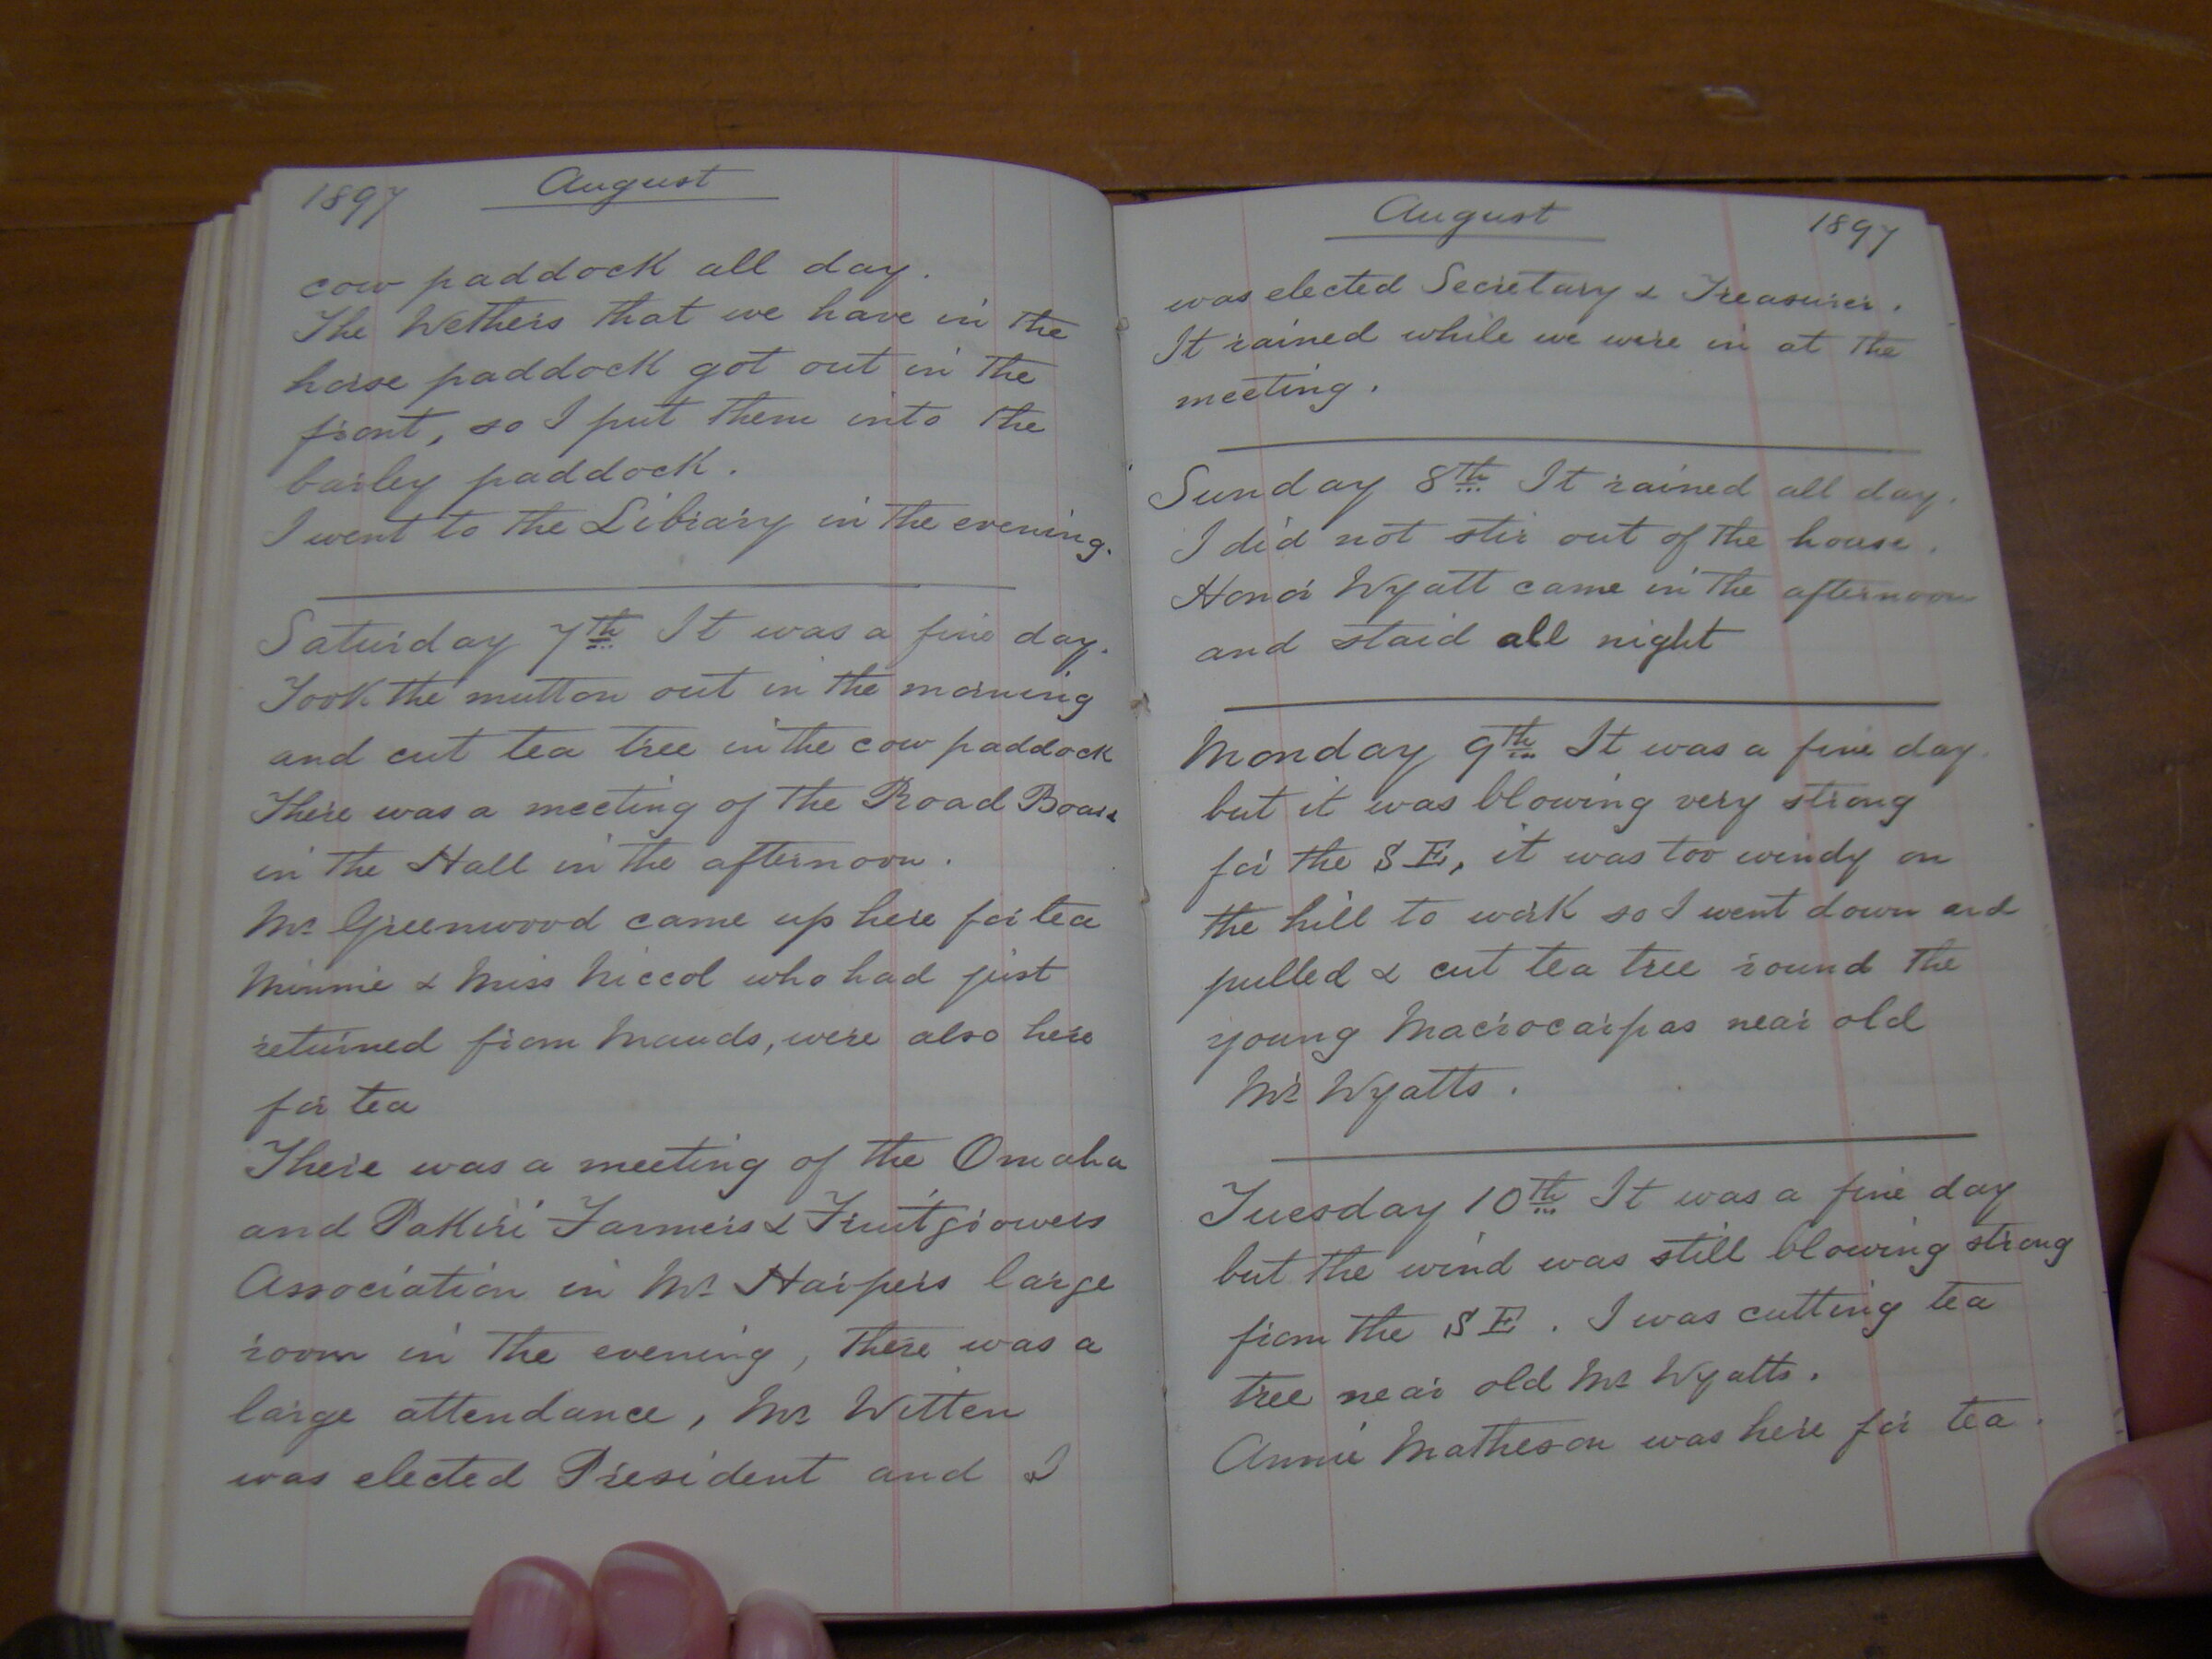 1897 August
cow paddock all day.
The Wethers that we have in the
horse paddock got out in the
front, so I put them into the
barley paddock.
I went to the Library in the evening.
Saturday 7th It was a fine day.
Took the mutton out in the morning
and cut tea tree in the cow paddock
There was a meeting of the Road Board
in the Hall in the afternoon.
Mr Greenwood came up here for tea
Minnie & Miss Niccol who had just
returned from Mauds, were also here
for tea
There was a meeting of the Omaha
and Pakiri Farmers & Fruitgrowers
Association in Mr Harpers large
room in the evening, there was a
large attendance, Mr Witten
was elected President and I
August 1897
was elected Secretary & Treasurer.
It rained while we were in at the
meeting.
Sunday 8th It rained all day.
I did not stir out of the house.
Honor Wyatt came in the afternoon
and staid all night
Monday 9th It was a fine day.
but it was blowing very strong
for the S E, it was too windy on
the hill to work so I went down and
pulled & cut tea tree round the
young Macrocarpas near old
Mr Wyatts.
Tuesday 10th It was a fine day
but the wind was still blowing strong
from the S E. I was cutting tea
tree near old Mr Wyatts.
Annie Matheson was here for tea.